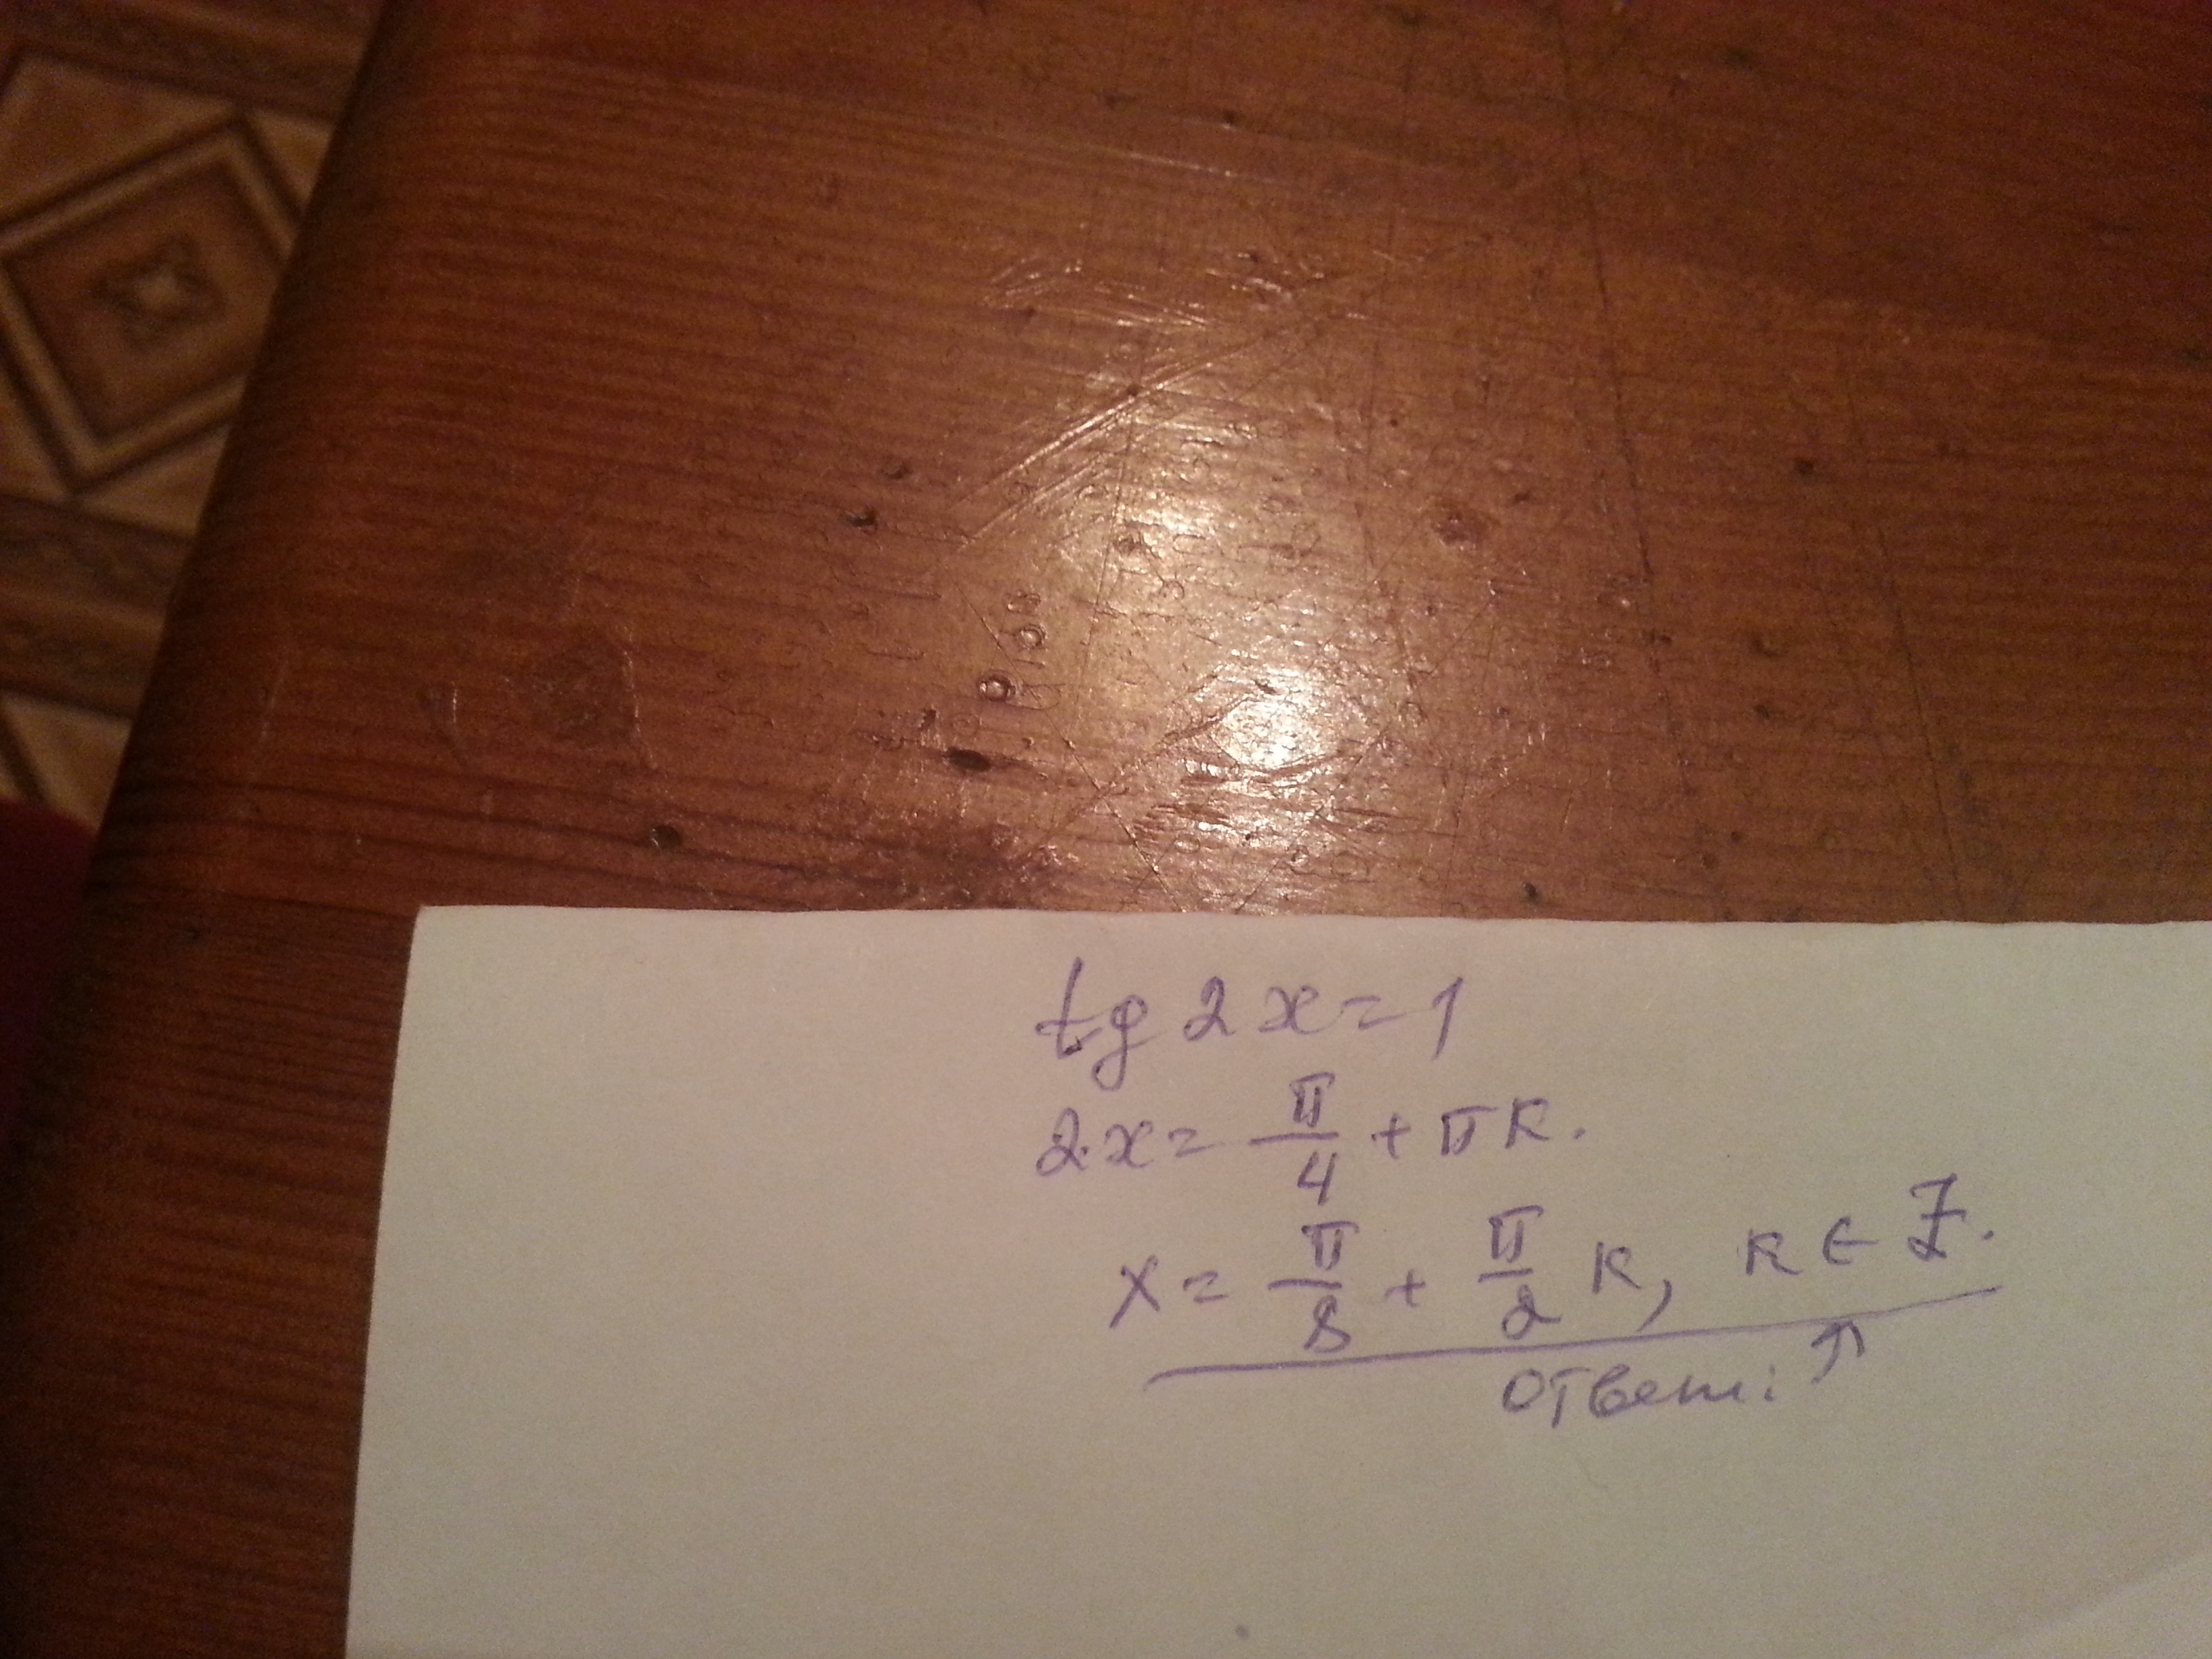 tg 2x = 1
2x = π/4 + πk.
x = π/8 + π/2 k, k ∈ Z.
Ответ: ↑